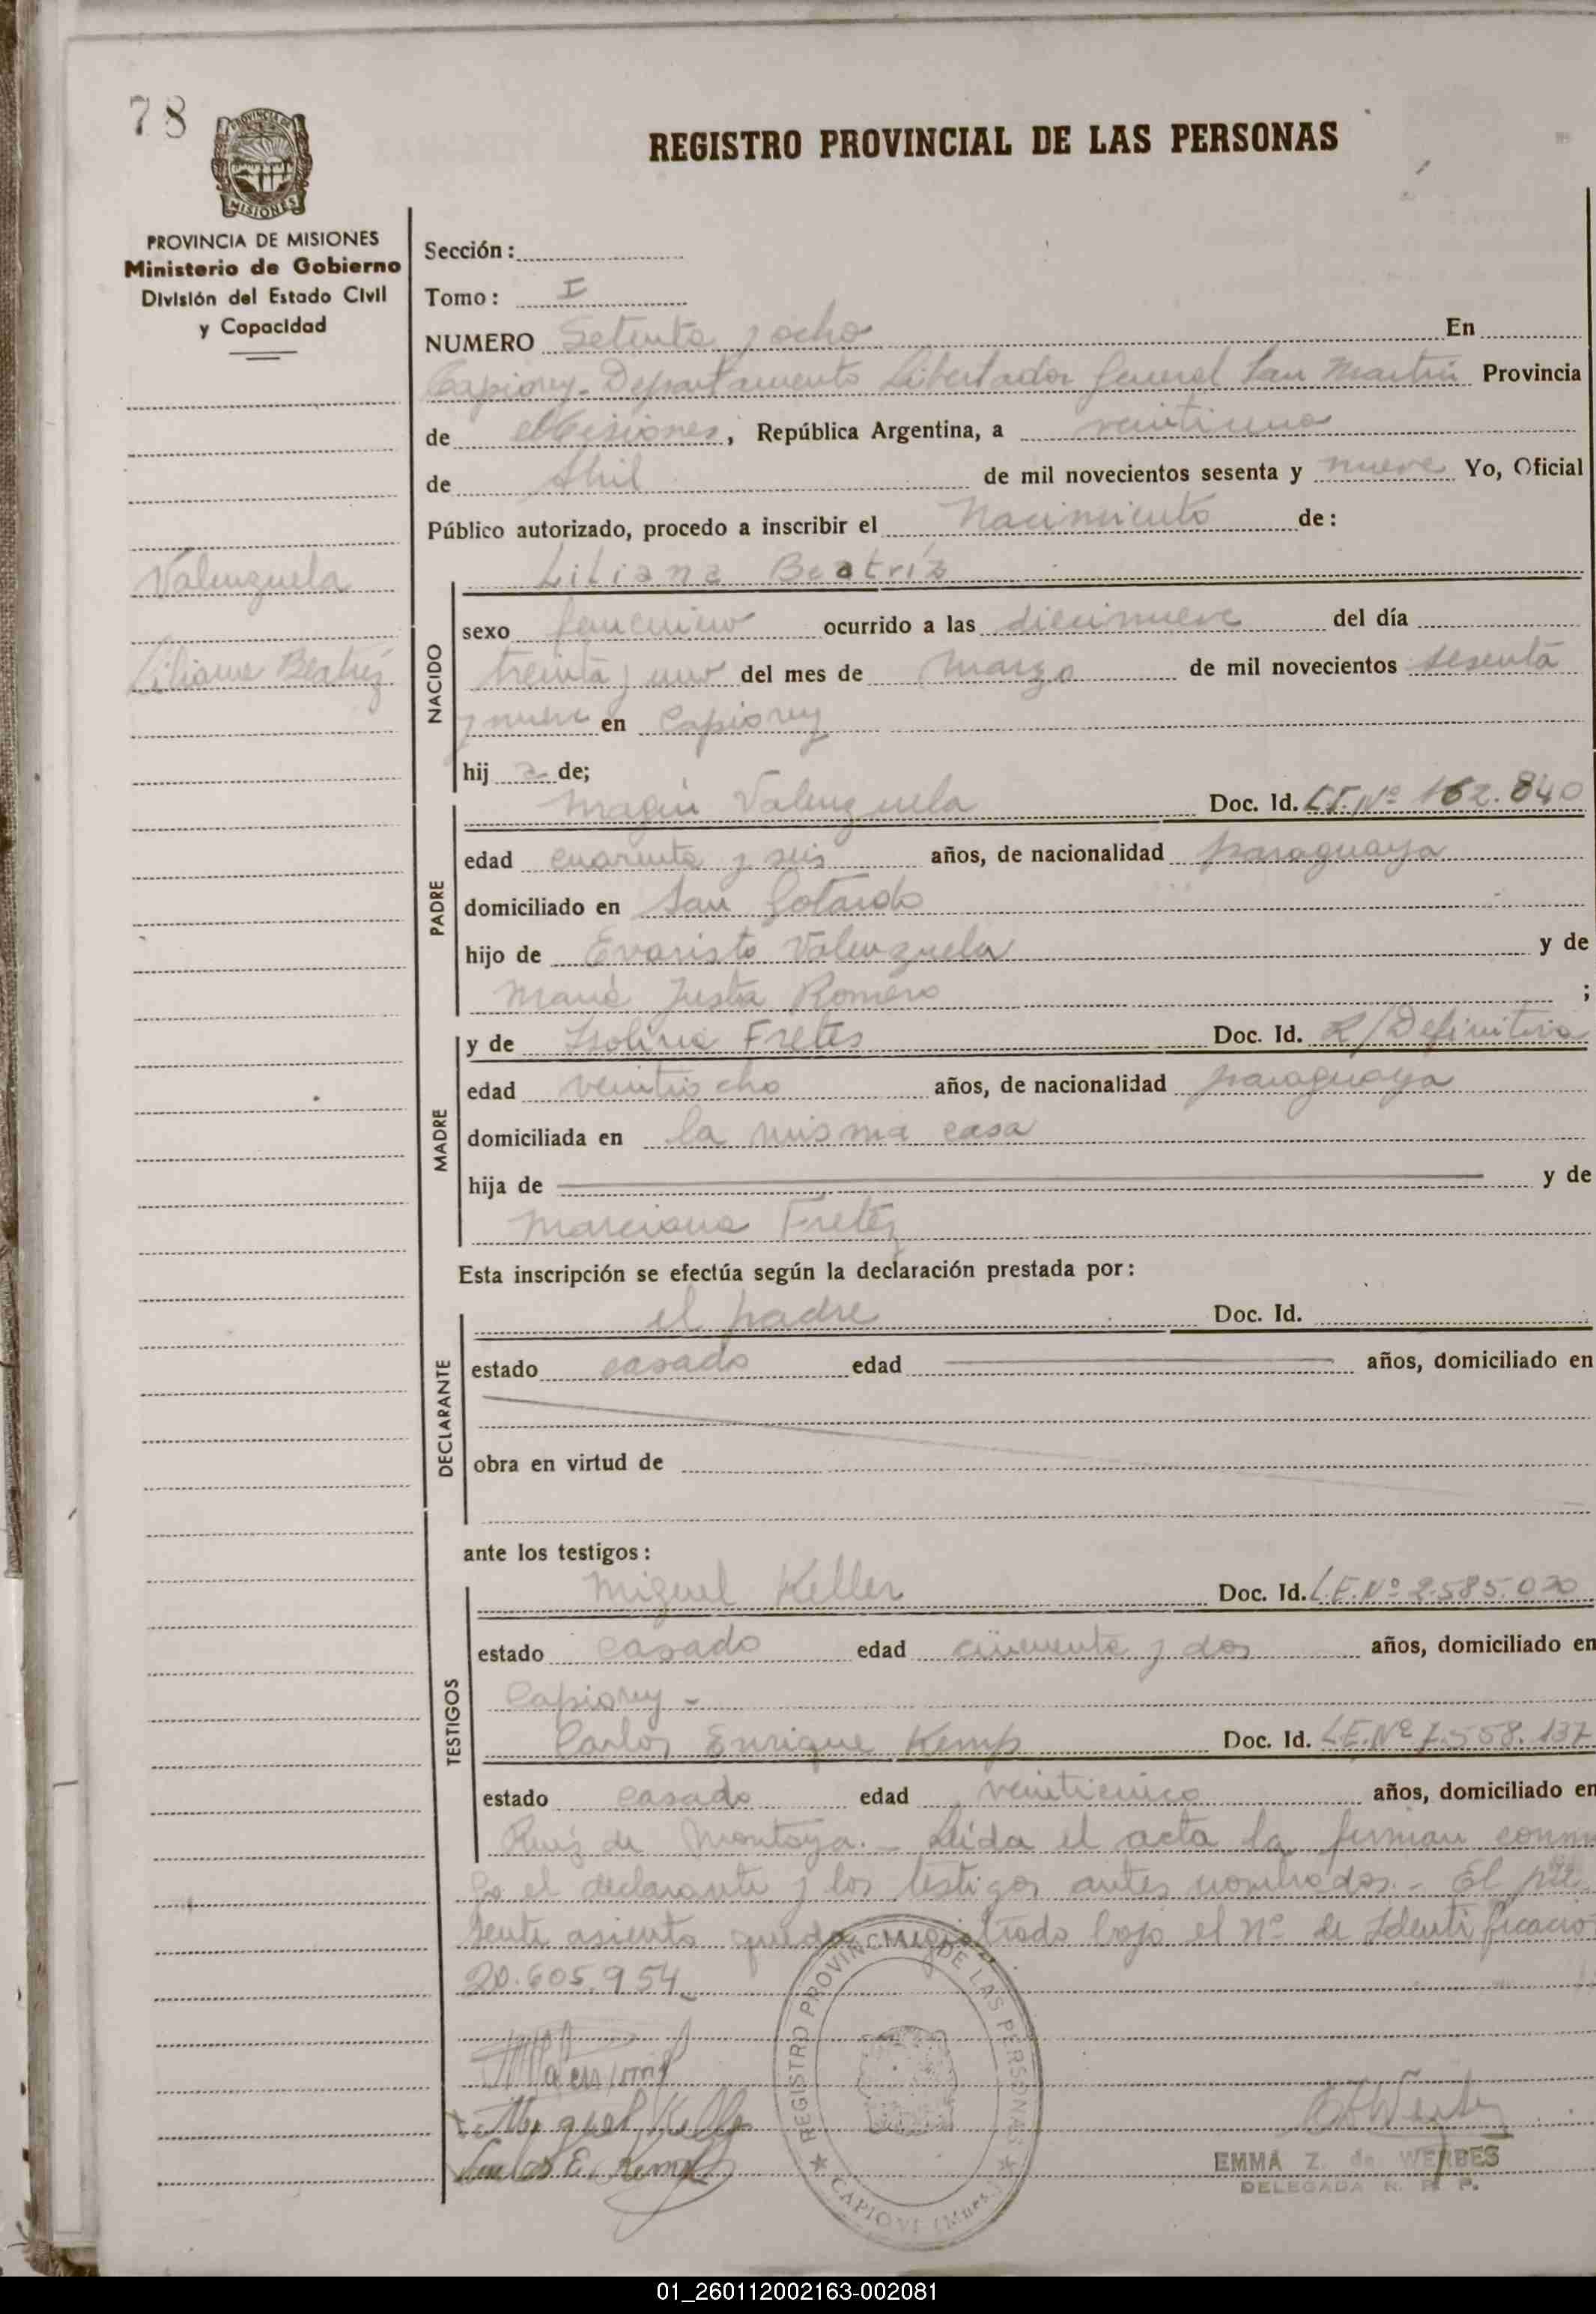 78
REGISTRO PROVINCIAL DE LAS PERSONAS
PROVINCIA DE MISIONES
MISIONES
PROVINCIA DE MISIONES
Ministerio de Gobierno
División del Estado Civil
y Capacidad
Valenzuela
Liliana Beatriz
Sección:
Tomo: I
NUMERO Setenta y ocho En
Capiovy - Departamento Libertador General San Martin Provincia
de Misiones, República Argentina, a veintiuno
de Abril de mil novecientos sesenta y nueve Yo, Oficial
Público autorizado, procedo a inscribir el Nacimiento de:
NACIDO
Liliana Beatríz
sexo femenino ocurrido a las diecinueve del día
treinta y uno del mes de Marzo de mil novecientos sesenta
y nueve en Capiovy
hij a de;
PADRE
Magin Valenzuela Doc. Id. Nº 162.840
edad cuarenta y seis años, de nacionalidad paraguaya
domiciliado en San Gotardo
hijo de Evaristo Valenzuela y de
María Justa Romero ;
MADRE
y de Isolina Fretes Doc. Id. R/Definitiva
edad veintiocho años, de nacionalidad paraguaya
domiciliada en la misma casa
hija de y de
Marciana Fretez
Esta inscripción se efectúa según la declaración prestada por:
DECLARANTE
el padre Doc. Id.
estado casado edad años, domiciliado en
obra en virtud de
ante los testigos:
TESTIGOS
Miguel Keller Doc. Id. L.E.Nº 2.585.020
estado casado edad cincuenta y dos años, domiciliado en
Capiovy -
Carlos Enrique Kemp Doc. Id. L.E.Nº 7.558.137
estado casado edad veinticinco años, domiciliado en
Ruiz de Montoya. - Leida el acta la firman conmi
go el declarante y los testigos antes nombrados. - El pre
sente asiento queda registrado bajo el Nº de Identificacio
20.605.954
Miguel Keller
Carlos E. Kemp
REGISTRO PROVINCIAL DE LAS PERSONAS
CAPIOVI (Mnes.)
EMMA Z. de WERBES
DELEGADA R. P. P.
01_260112002163-002081